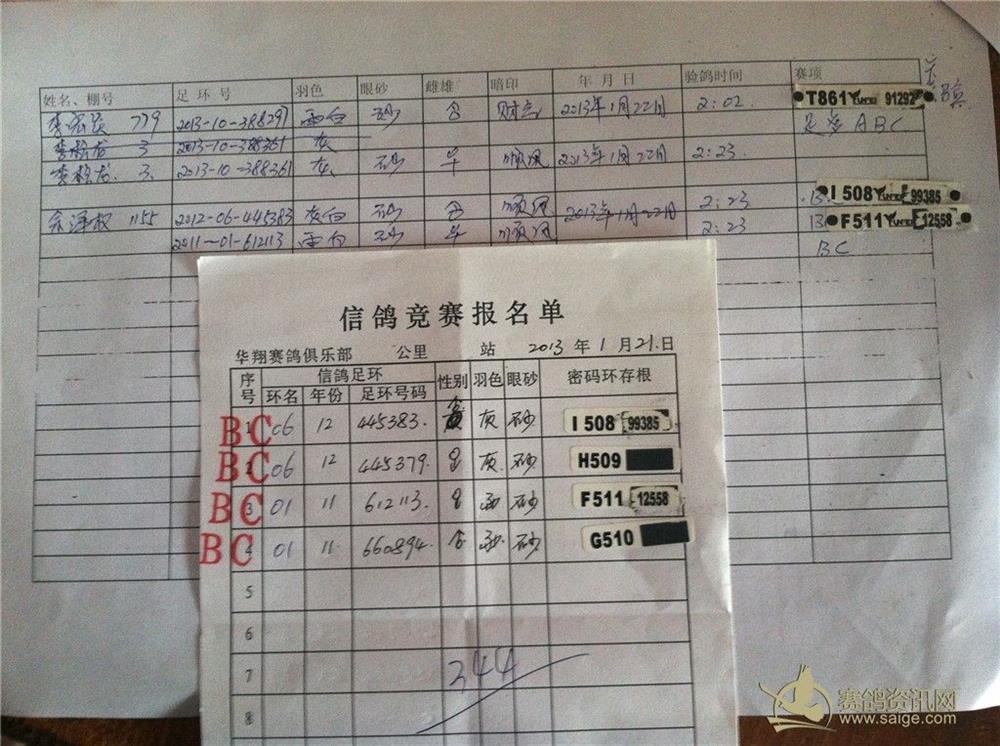 姓名、棚号 足环号 羽色 眼砂 雌雄 暗印 年月日 验鸽时间 赛项
779 2013-10-388291 雨白 砂 2013年1月22日 2:02 T861 91292
足兰 ABC
3 2013-10-388361 灰
3 2013-10-388361 灰 砂 顺风 2013年1月22日 2:23
I508 99385
1155 2012-06-445383 灰白 砂 顺风 2013年1月22日 2:23 13 F511 12558
2011-01-612113 雨白 砂 顺风 2:23 BC
信鸽竞赛报名单
华翔赛鸽俱乐部 公里 站 2013年1月21日
序号 信鸽足环 性别 羽色 眼砂 密码环存根
环名 年份 足环号码
BC 1 06 12 445383. 灰 砂 I508 99385
BC 2 06 12 445379. 灰 砂 H509
BC 3 01 11 612113. 雨 砂 F511 12558
BC 4 01 11 660894. 雨 砂 G510
5
6
7
344
8
赛鸽资讯网
www.saige.com